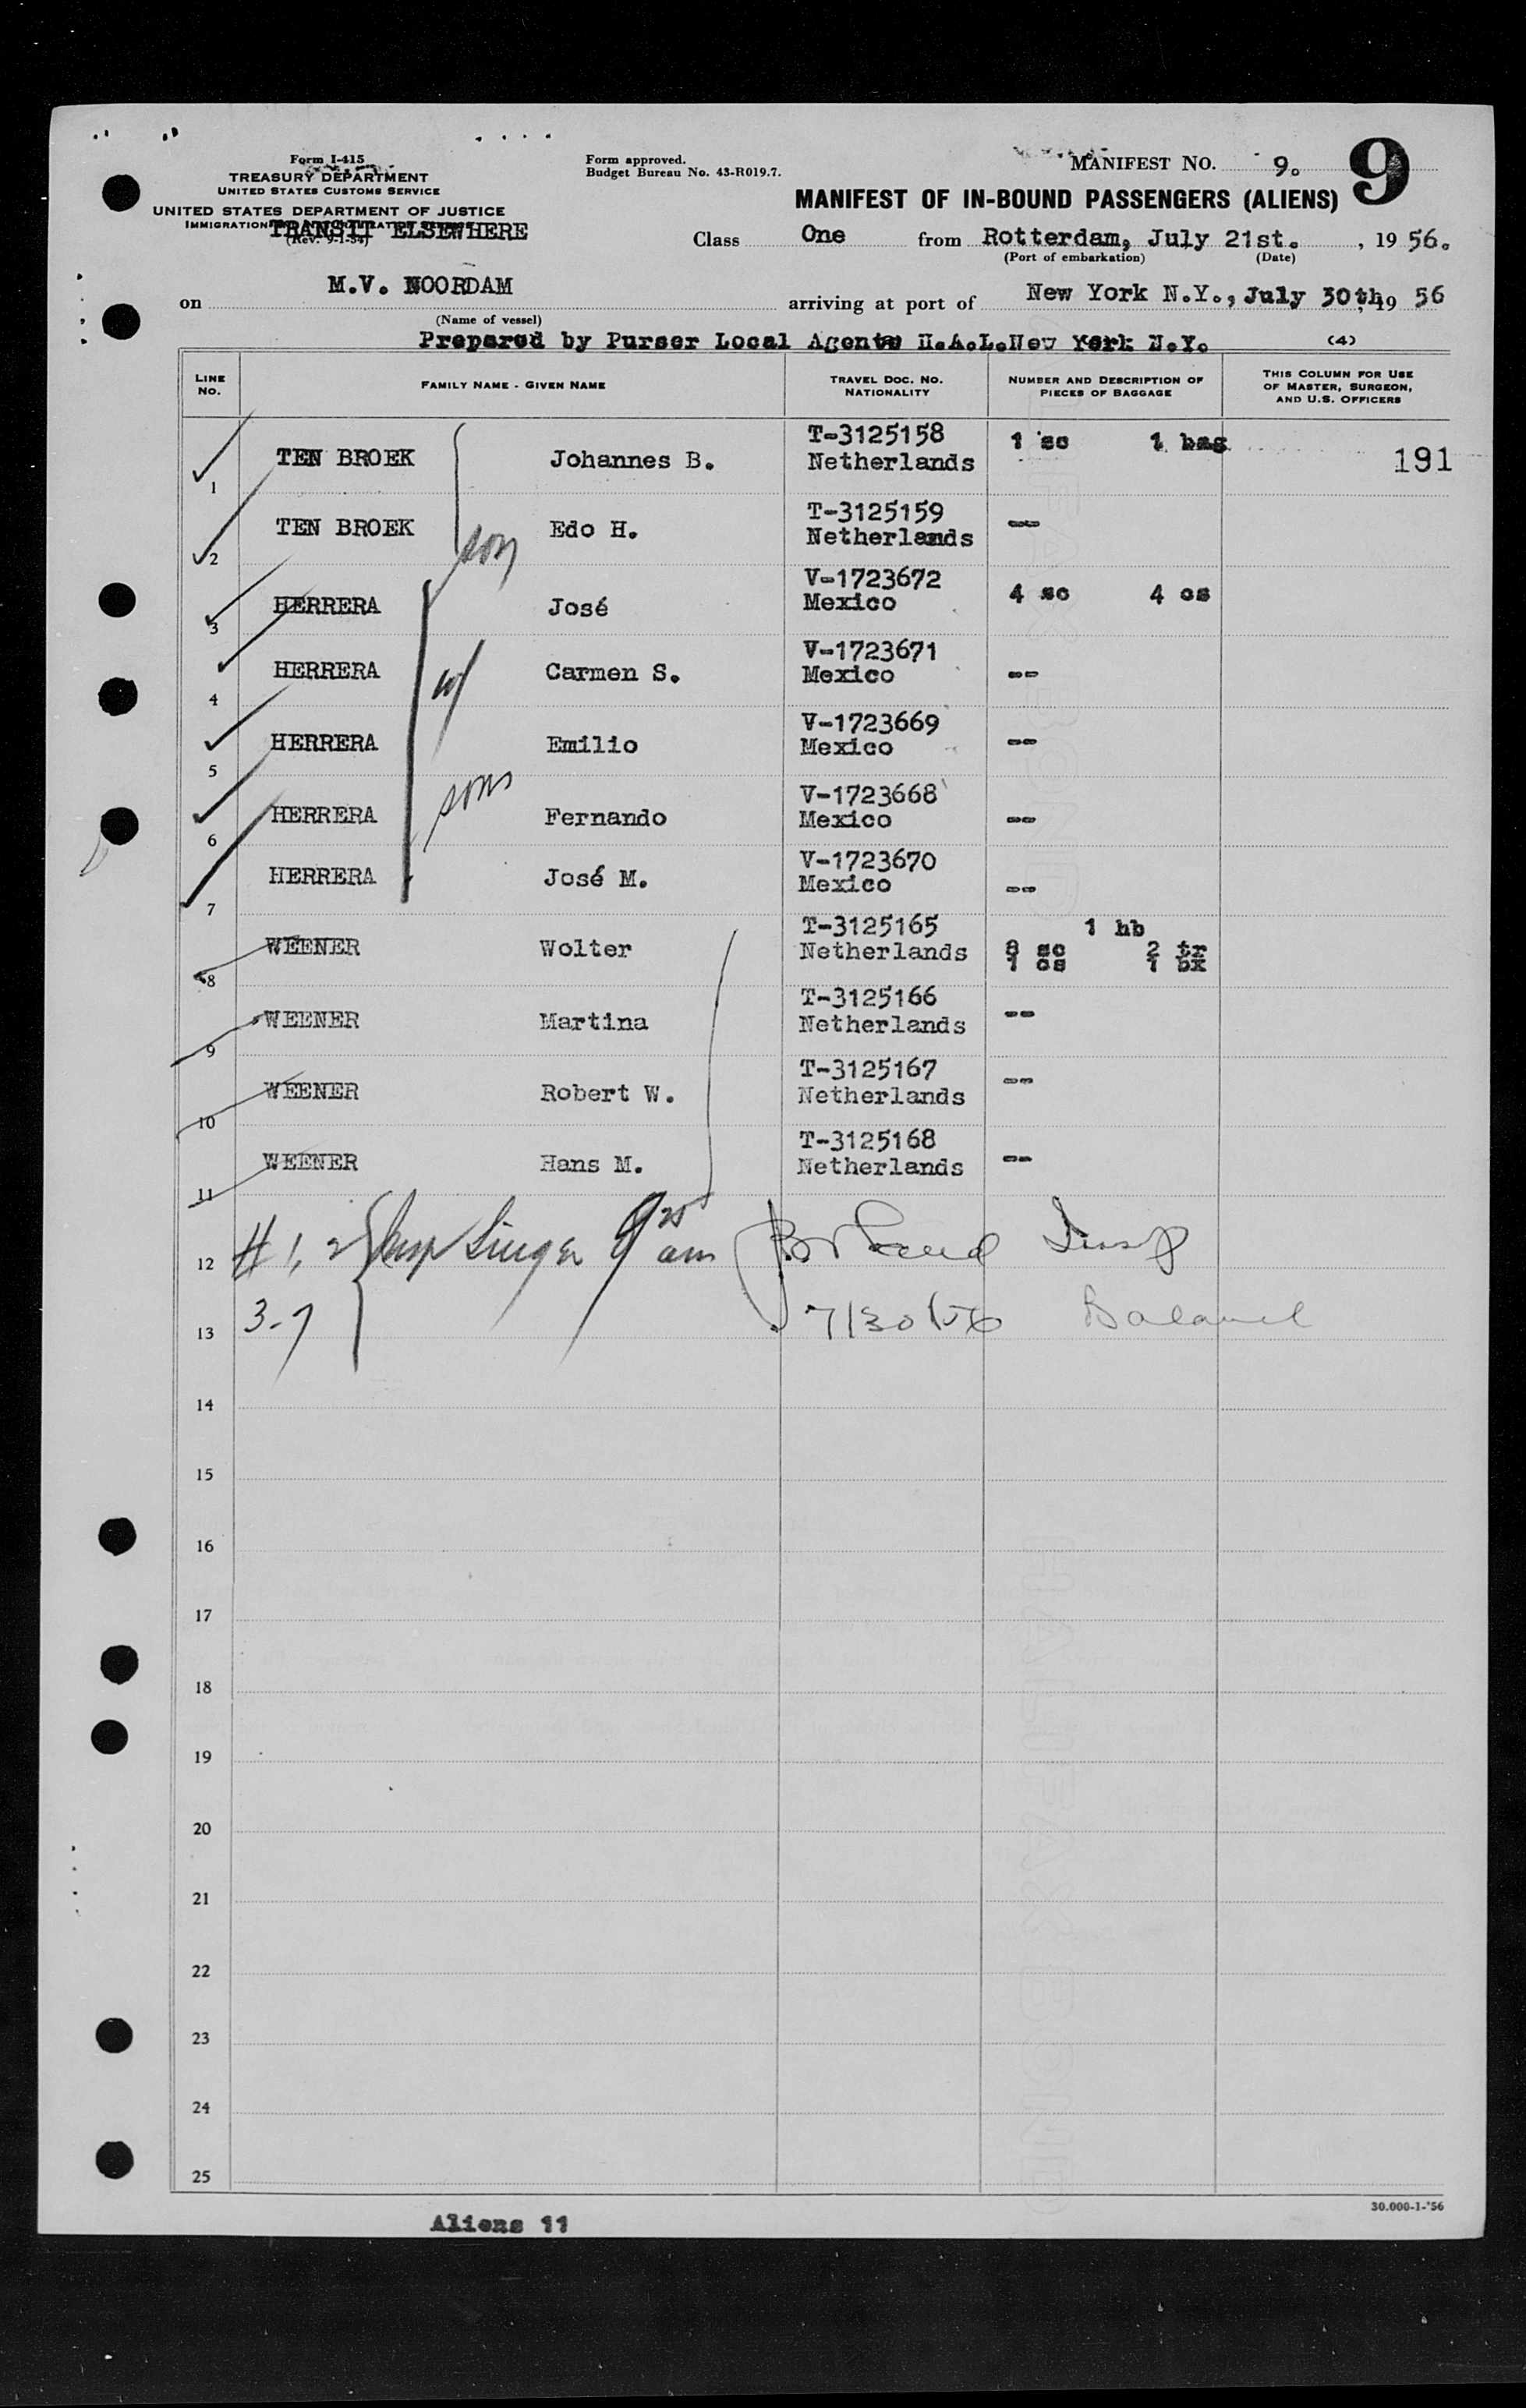 Form I-415
TREASURY DEPARTMENT
UNITED STATES CUSTOMS SERVICE
UNITED STATES DEPARTMENT OF JUSTICE
IMMIGRATION
TRANSIT ELSEWHERE
(Rev. 9-1-54)
Form approved.
Budget Bureau No. 43-R019.7.
MANIFEST NO. 9. 9
MANIFEST OF IN-BOUND PASSENGERS (ALIENS)
Class One from Rotterdam, July 21st. , 19 56.
(Port of embarkation) (Date)
on M.V. NOORDAM arriving at port of New York N.Y., July 30th, 19 56
(Name of vessel)
Prepared by Purser Local Agents H.A.L. New York N.Y. (4)
LINE NO. FAMILY NAME - GIVEN NAME TRAVEL DOC. NO. NATIONALITY NUMBER AND DESCRIPTION OF PIECES OF BAGGAGE THIS COLUMN FOR USE OF MASTER, SURGEON, AND U.S. OFFICERS
1 TEN BROEK Johannes B. T-3125158 Netherlands 1 sc 1 bag 191
2 TEN BROEK son Edo H. T-3125159 Netherlands --
3 HERRERA José V-1723672 Mexico 4 sc 4 cs
4 HERRERA w/ Carmen S. V-1723671 Mexico --
5 HERRERA Emilio V-1723669 Mexico --
6 HERRERA sons Fernando V-1723668 Mexico --
7 HERRERA José M. V-1723670 Mexico --
8 WEENER Wolter T-3125165 Netherlands 1 hb 8 sc 2 tr 1 cs 1 bx
9 WEENER Martina T-3125166 Netherlands --
10 WEENER Robert W. T-3125167 Netherlands --
11 WEENER Hans M. T-3125168 Netherlands --
12 # 1, 2 Insp Singer 9 25 am Insp
13 3-7 7/30/56
14
15
16
17
18
19
20
21
22
23
24
25
30.000-1-'56
Aliens 11